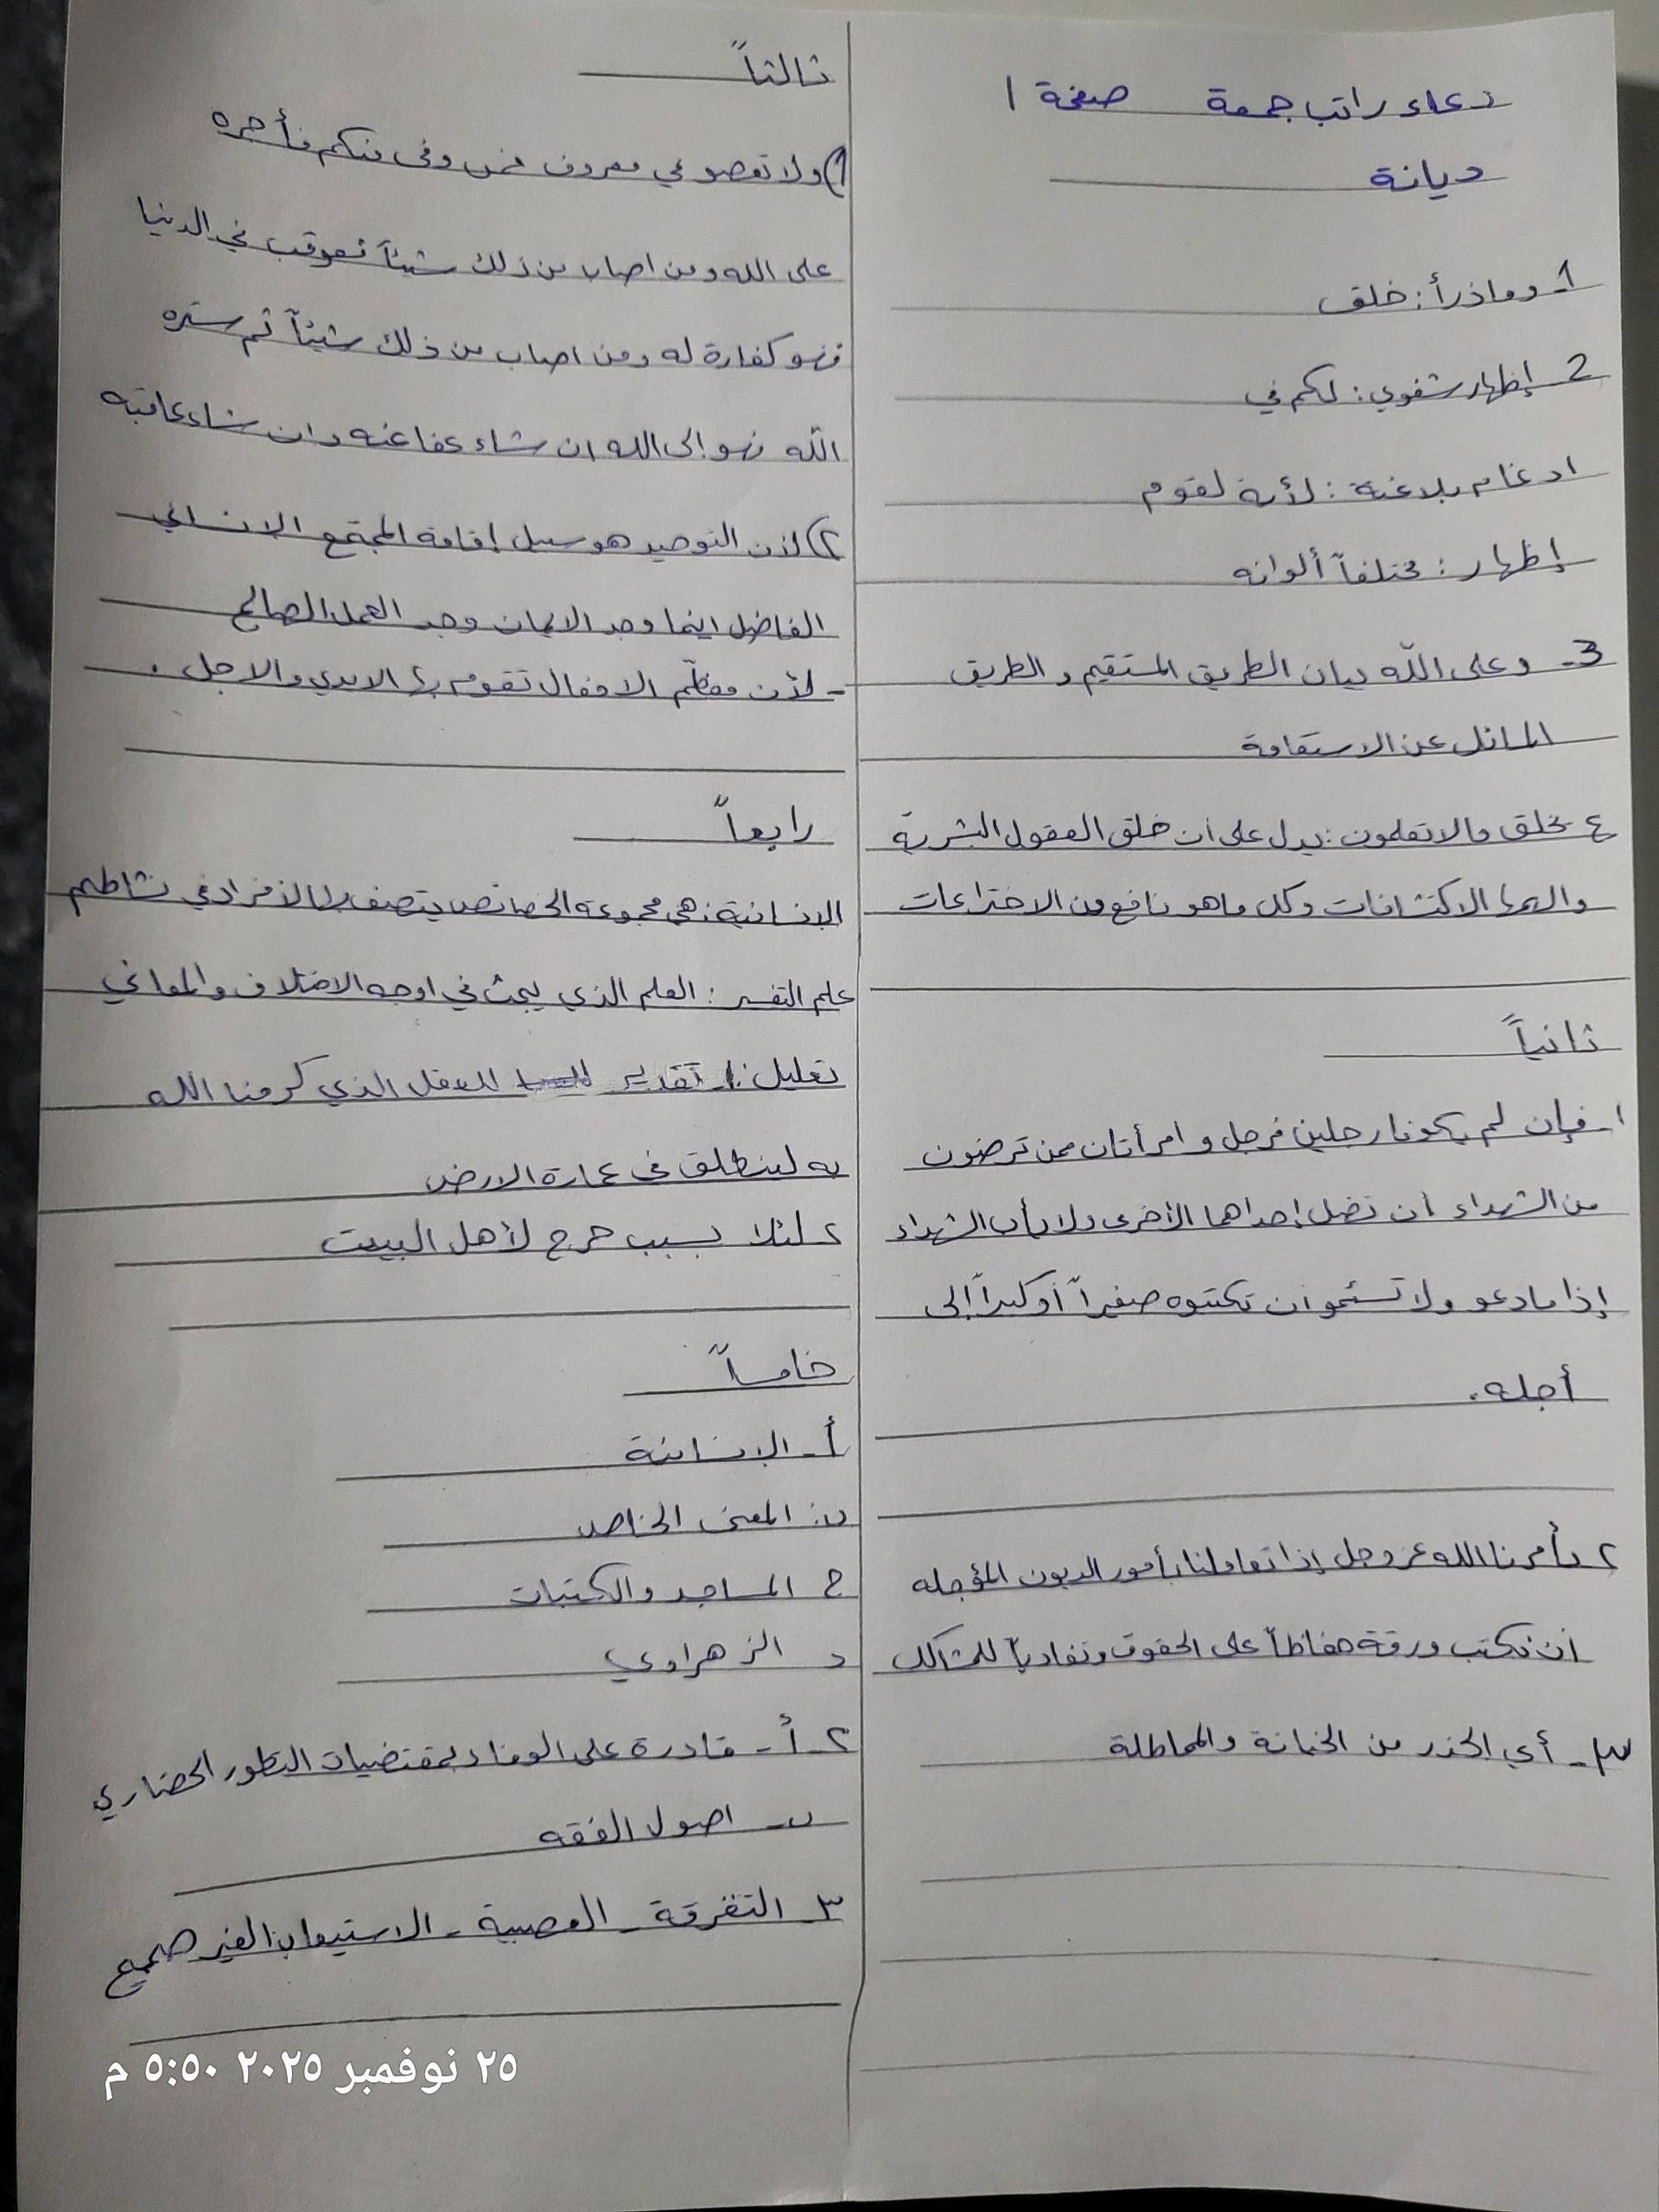 دعاء راتب جمعة صفحة ١
ديانة
1- وماذرأ: خلق
2- إظهار شفوي: لكم في
ادغام بلاغنة: لأية لقوم
إظهار: مختلفاً ألوانه
3- وعلى اللّه بيان الطريق المستقيم والطريق
المائل عن الاستقامة
ع يخلق مالاتعلمون: يدل على ان خلق العقول البشرية
والهمها الاكتشافات وكل ماهو نافع من الاختراعات
ثانياً
١- فإن لم يكونا رجلين فرجل وامرأتان ممن ترضون
من الشهداء ان تضل إحداهما الأخرى ولا يأب الشهداء
إذا مادعو ولا تسئمو ان تكتبوه صغيراً أو كبيراً إلى
أجله.
٢ يأمرنا الله عز وجل إذا تعاملنا بأمور الديون المؤجله
ان نكتب ورقة حفاظاً على الحقوق وتفادياً للمشاكل
٣- أي الحذر من الخيانة والمماطلة
ثالثاً
١) ولا تعصو في معروف فمن وفى منكم فأجره
على الله ومن اصاب من ذلك شيئاً فعوقب في الدنيا
فهو كفارة له ومن اصاب من ذلك شيئاً ثم ستره
اللّه فهو إلى الله ان شاء عفا عنه وان شاء عاقبه
٢) لأن التوحيد هو سبيل إقامة المجتمع الانساني
الفاضل اينما وجد الايمان وجد العمل الصالح
- لأن معظم الافعال تقوم بها الايدي والارجل .
رابعاً
الإنسانية: هي مجموعة الخصائص يتصف بها الأفراد في نشاطهم
علم التفسير: العلم الذي يبحث في اوجه الاختلاف والمعاني
تعليل: ١- تقدير للعقل الذي كرمنا الله
به لينطلق في عمارة الارض
٢ لئلا يسبب حرج لأهل البيت
خامساً
أ- الإنسانية
ب: المعنى الخاص
ج المساجد والمكتبات
د الزهراوي
٢- أ- قادرة على الوفاء بمقتضيات التطور الحضاري
ب- اصول الفقه
٣- التفرقة - العصبية - الاستيعاب الغير صحيح
٢٥ نوفمبر ٢٠٢٥ ٥:٥٠ م